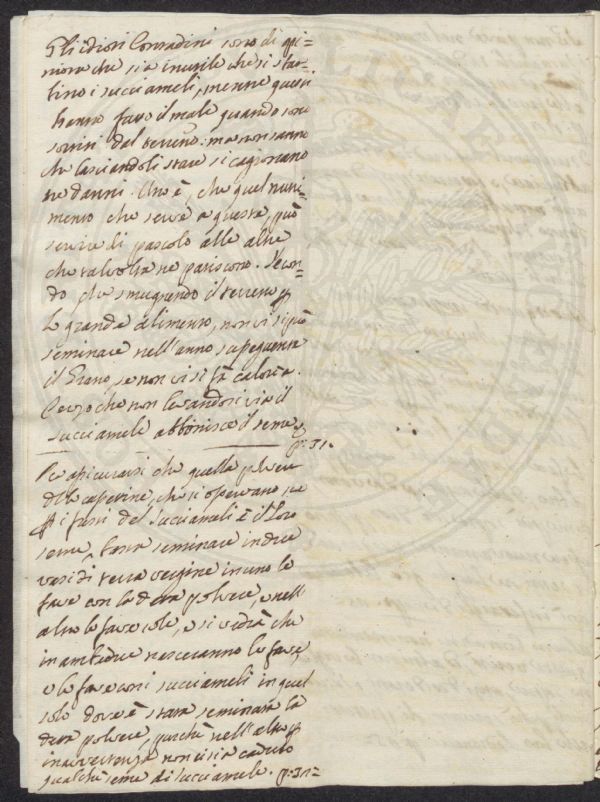 Gl'idioti Contadini sono di opi=
nione che sia inutile che si star=
tino i succiameli, mentre questi
hanno fatto il male quando sono
sortiti dal terreno: ma non sanno
che lasciandoli stare si cagionano
tre danni. Uno è, che quel nutri=
mento che serve a questa, può
servire di pascolo alle altre
che talvolta ne patiscono. Secon=
do che smugnendo il terreno p
le grande alimento, non vi si può
seminare nell'anno susseguente
il Grano, se non vi si fà caloria.
Terzo che non levandosi via il
succiamele abbonisce il seme p. 31.
Per assicurarsi che quella polvere
delle caperine, che si osservano ne
i fusti del succiameli è il loro
seme, basta seminare in due
vasi di terra vergine in uno le
fave con la detta polvere, e nell'
altro le fave sole, e si vedrà che
in ambidue nasceranno le fave,
e le fave con i succiameli in quel
solo dove è stata seminata la
detta polvere, purchè nell'altro p
inavvertenza non ci sia caduto
qualche seme di succiamele. p. 31=